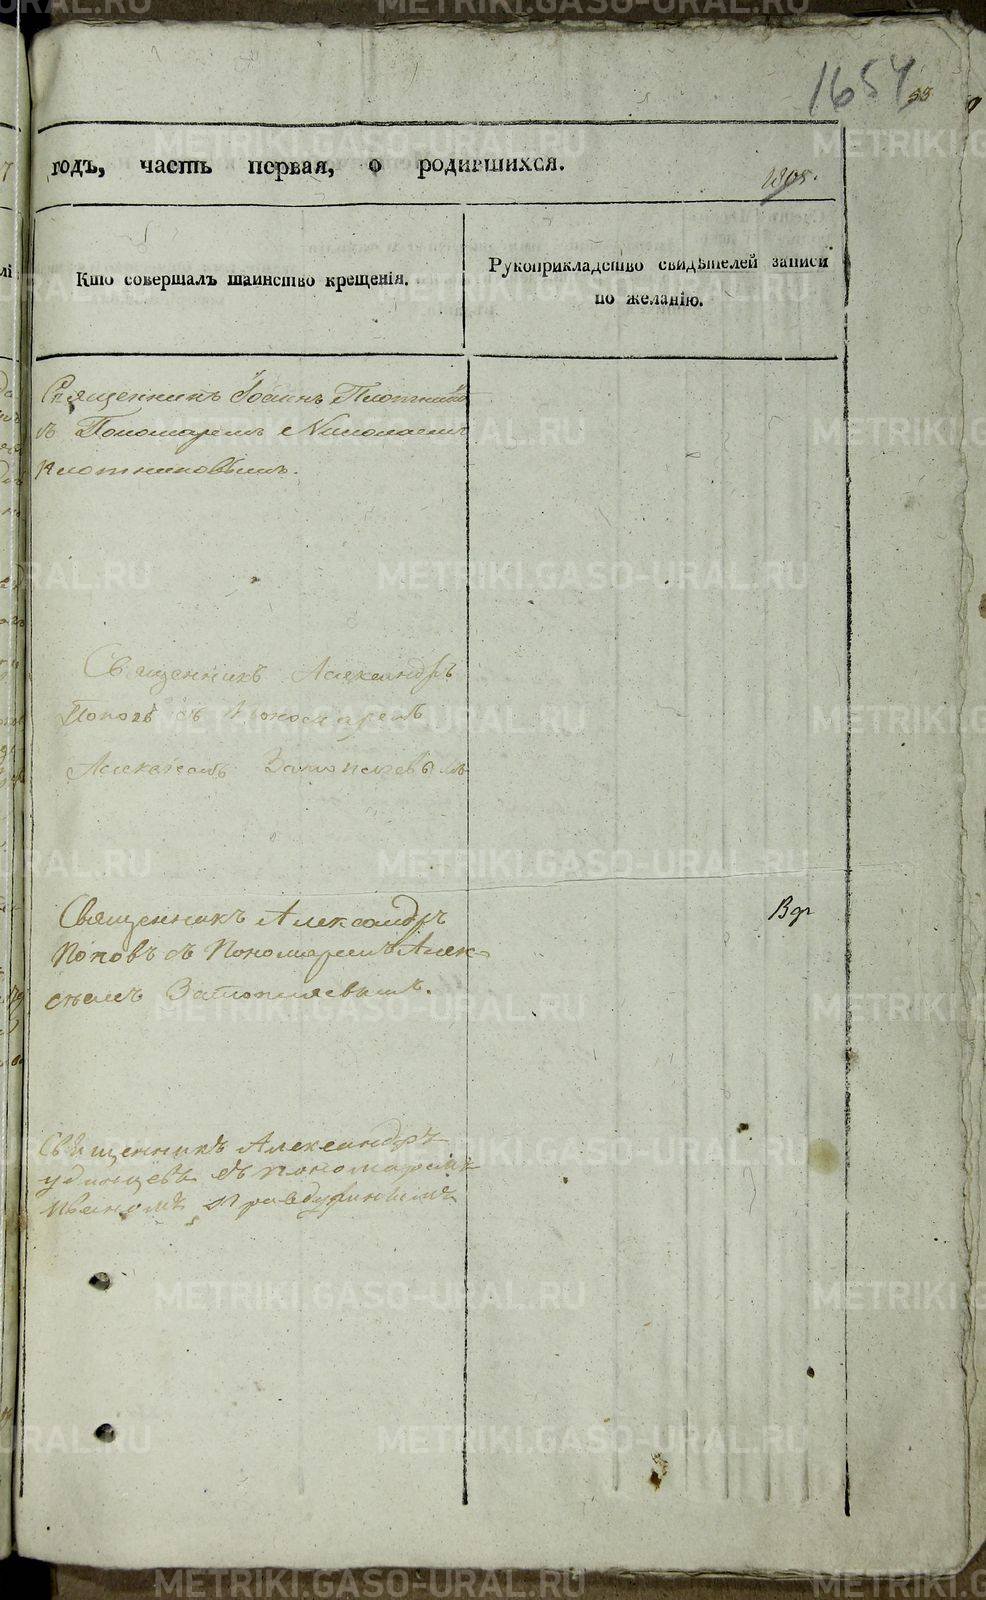 1654
93
годъ, часть первая, о родившихся.
Кто совершалъ таинство крещенія.
Рукоприкладство свидѣтелей записи
по желанію.
Священникъ Іоаннъ Плотниковъ
съ Пономаремъ Николаемъ
Плотниковымъ.
Священникъ Александръ
Поповъ съ Пономаремъ
Алексѣемъ Затопляевымъ
Священникъ Александръ
Поповъ съ Пономаремъ Алек-
сѣемъ Затопляевымъ.
Священникъ Александръ
Удинцевъ съ пономаремъ
Иваномъ Правдухинымъ
METRIKI.GASO-URAL.RU